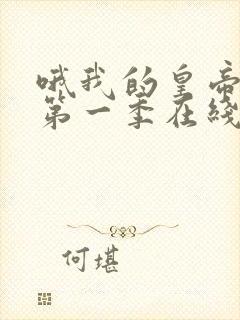 哦我的皇帝
第一季在线
何堪